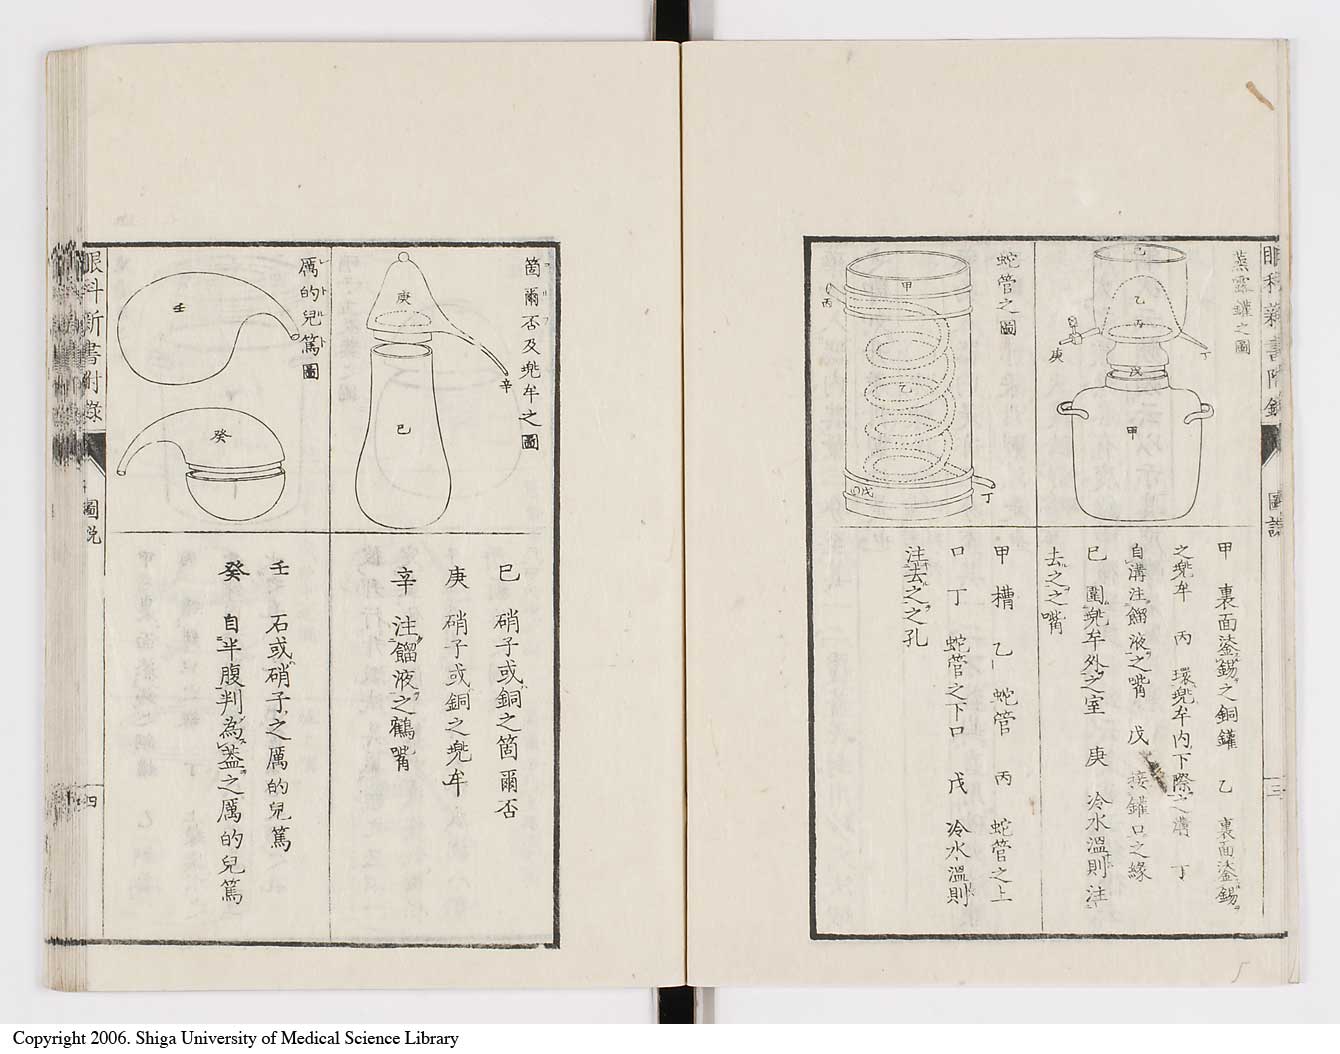 眼科新書附錄
圖說
三
蒸露罐之圖
己
乙
丙
丁
庚
戊
甲
甲　裏面塗錫之銅罐　乙　裏面塗錫
之兠牟　丙　環兠牟内下際之溝　丁
自溝注餾液之嘴　戊　接罐口之緣
己　圍兠牟外之室　庚　冷水溫則注
去之之嘴
蛇管之圖
甲
丙
乙
戊
丁
甲　槽　乙　蛇管　丙　蛇管之上
口　丁　蛇管之下口　戊　冷水溫則
注去之之孔
箇爾否及兠牟之圖
庚
辛
己
己　硝子或銅之箇爾否
庚　硝子或銅之兠牟
辛　注餾液之鶴嘴
厲的兒篤圖
レトルト
壬
癸
壬　石或硝子之厲的兒篤
癸　自半腹判為蓋之厲的兒篤
眼科新書附錄
圖說
四
5
Copyright 2006. Shiga University of Medical Science Library